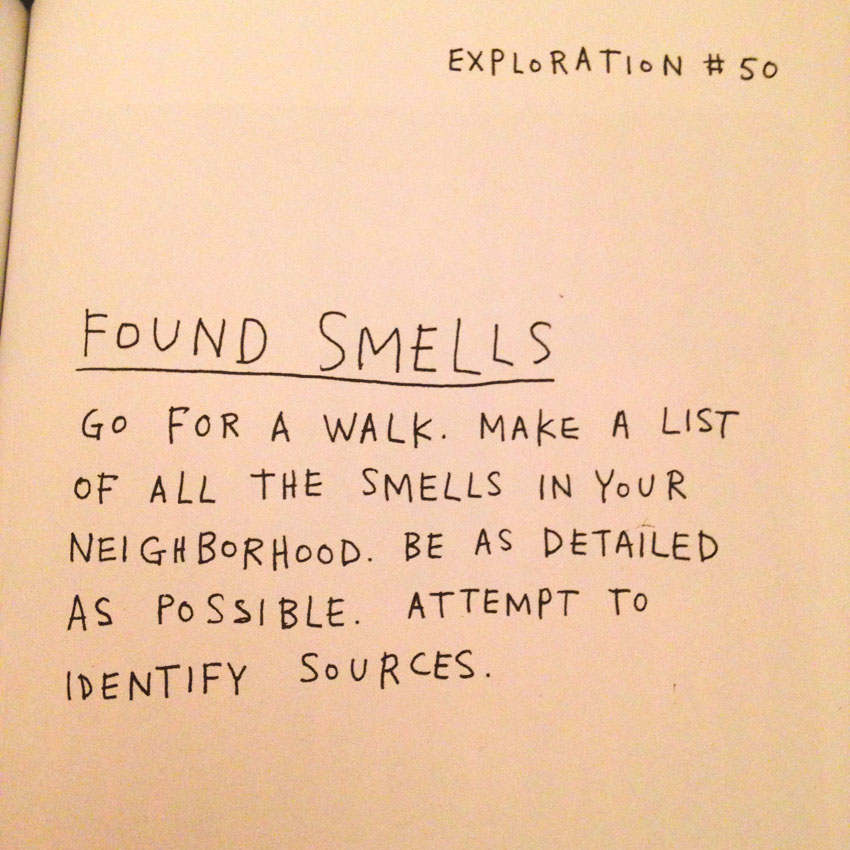 EXPLORATION # 50
FOUND SMELLS
GO FOR A WALK. MAKE A LIST
OF ALL THE SMELLS IN YOUR
NEIGHBORHOOD. BE AS DETAILED
AS POSSIBLE. ATTEMPT TO
IDENTIFY SOURCES.